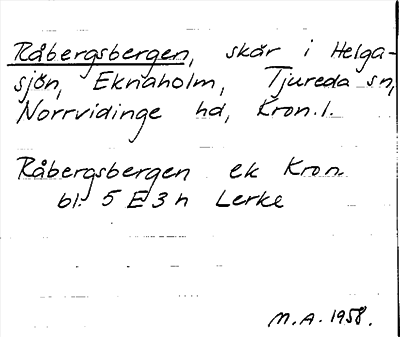 Råbergsbergen, skär i Helga-
sjön, Eknaholm, Tjureda sn,
Norrvidinge hd, Kron.l.
Råbergsbergen ek Kron.
bl. 5 E 3 h Lerke
M.A. 1958.